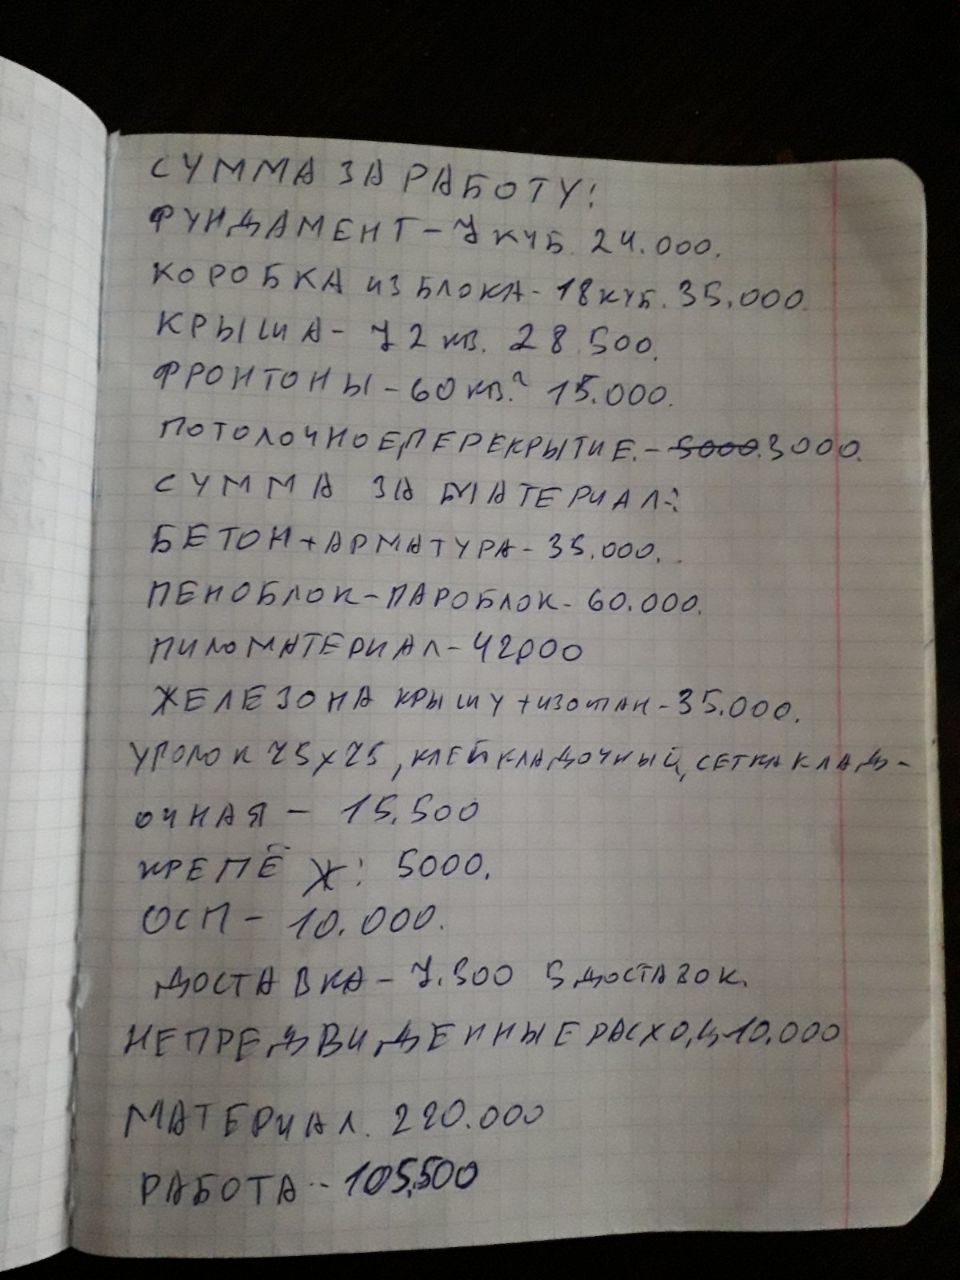 СУММА ЗА РАБОТУ:
ФУНДАМЕНТ - 7 КУБ. 24.000.
КОРОБКА ИЗ БЛОКА - 18 КУБ. 35.000.
КРЫША - 72 КВ. 28.500.
ФРОНТОНЫ - 60 КВ.² 15.000.
ПОТОЛОЧНОЕ ПЕРЕКРЫТИЕ. - 5000. 3000.
СУММА ЗА МАТЕРИАЛ:
БЕТОН + АРМАТУРА - 35.000.
ПЕНОБЛОК - ПАРОБЛОК - 60.000.
ПИЛОМАТЕРИАЛ - 42000
ЖЕЛЕЗО НА КРЫШУ + ИЗОСПАН - 35.000.
УГОЛОК 75х75, КЛЕЙ КЛАДОЧНЫЙ, СЕТКА КЛАД-
ОЧНАЯ - 15.500
КРЕПЁЖ: 5000.
ОСП - 10.000.
ДОСТАВКА - 7.500 5 ДОСТАВОК.
НЕПРЕДВИДЕННЫЕ РАСХОД 10.000
МАТЕРИАЛ. 220.000
РАБОТА - 105.500